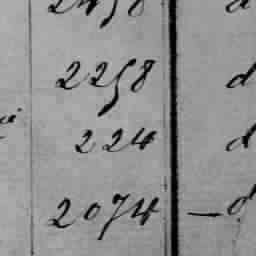 2258 d
224 d
2074 — d